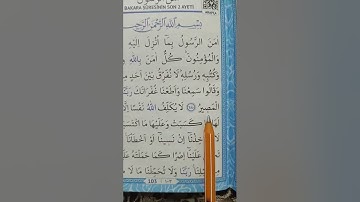 BAKARA SÛRESİNİN SON 2 AYETİ
بِسْمِ اللّٰهِ الرَّحْمٰنِ الرَّحِيمِ
اٰمَنَ الرَّسُولُ بِمَٓا اُنْزِلَ اِلَيْهِ
وَالْمُؤْمِنُونَ كُلٌّ اٰمَنَ بِاللّٰهِ
وَكُتُبِهِ وَرُسُلِهِ لَا نُفَرِّقُ بَيْنَ اَحَدٍ
وَقَالُوا سَمِعْنَا وَاَطَعْنَا غُفْرَانَكَ
الْمَصِيرُ لَا يُكَلِّفُ اللّٰهُ نَفْسًا
لَهَا كَسَبَتْ وَعَلَيْهَا مَا
اِنْ نَسِينَٓا اَوْ اَخْطَأْنَا
عَلَيْنَٓا اِصْرًا كَمَا حَمَلْتَهُ
رَبَّنَا وَلَا تُحَمِّلْنَا مَا لَا
103